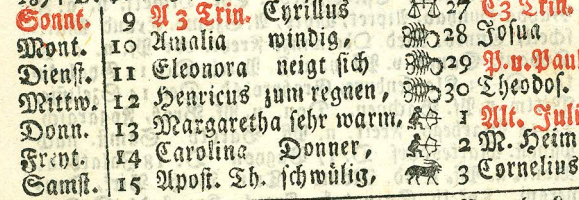 Sonnt. 9 A 3 Trin. Cyrillus 27 C 3 Trin.
Mont. 10 Amalia windig, 28 Josua
Dienst. 11 Eleonora neigt sich 29 P. u. Pau
Mittw. 12 Henricus zum regnen, 30 Theodos.
Donn. 13 Margaretha sehr warm. 1 Alt. Juli
Freyt. 14 Carolina Donner, 2 M. Heim
Samst. 15 Apost. Th. schwülig, 3 Cornelius